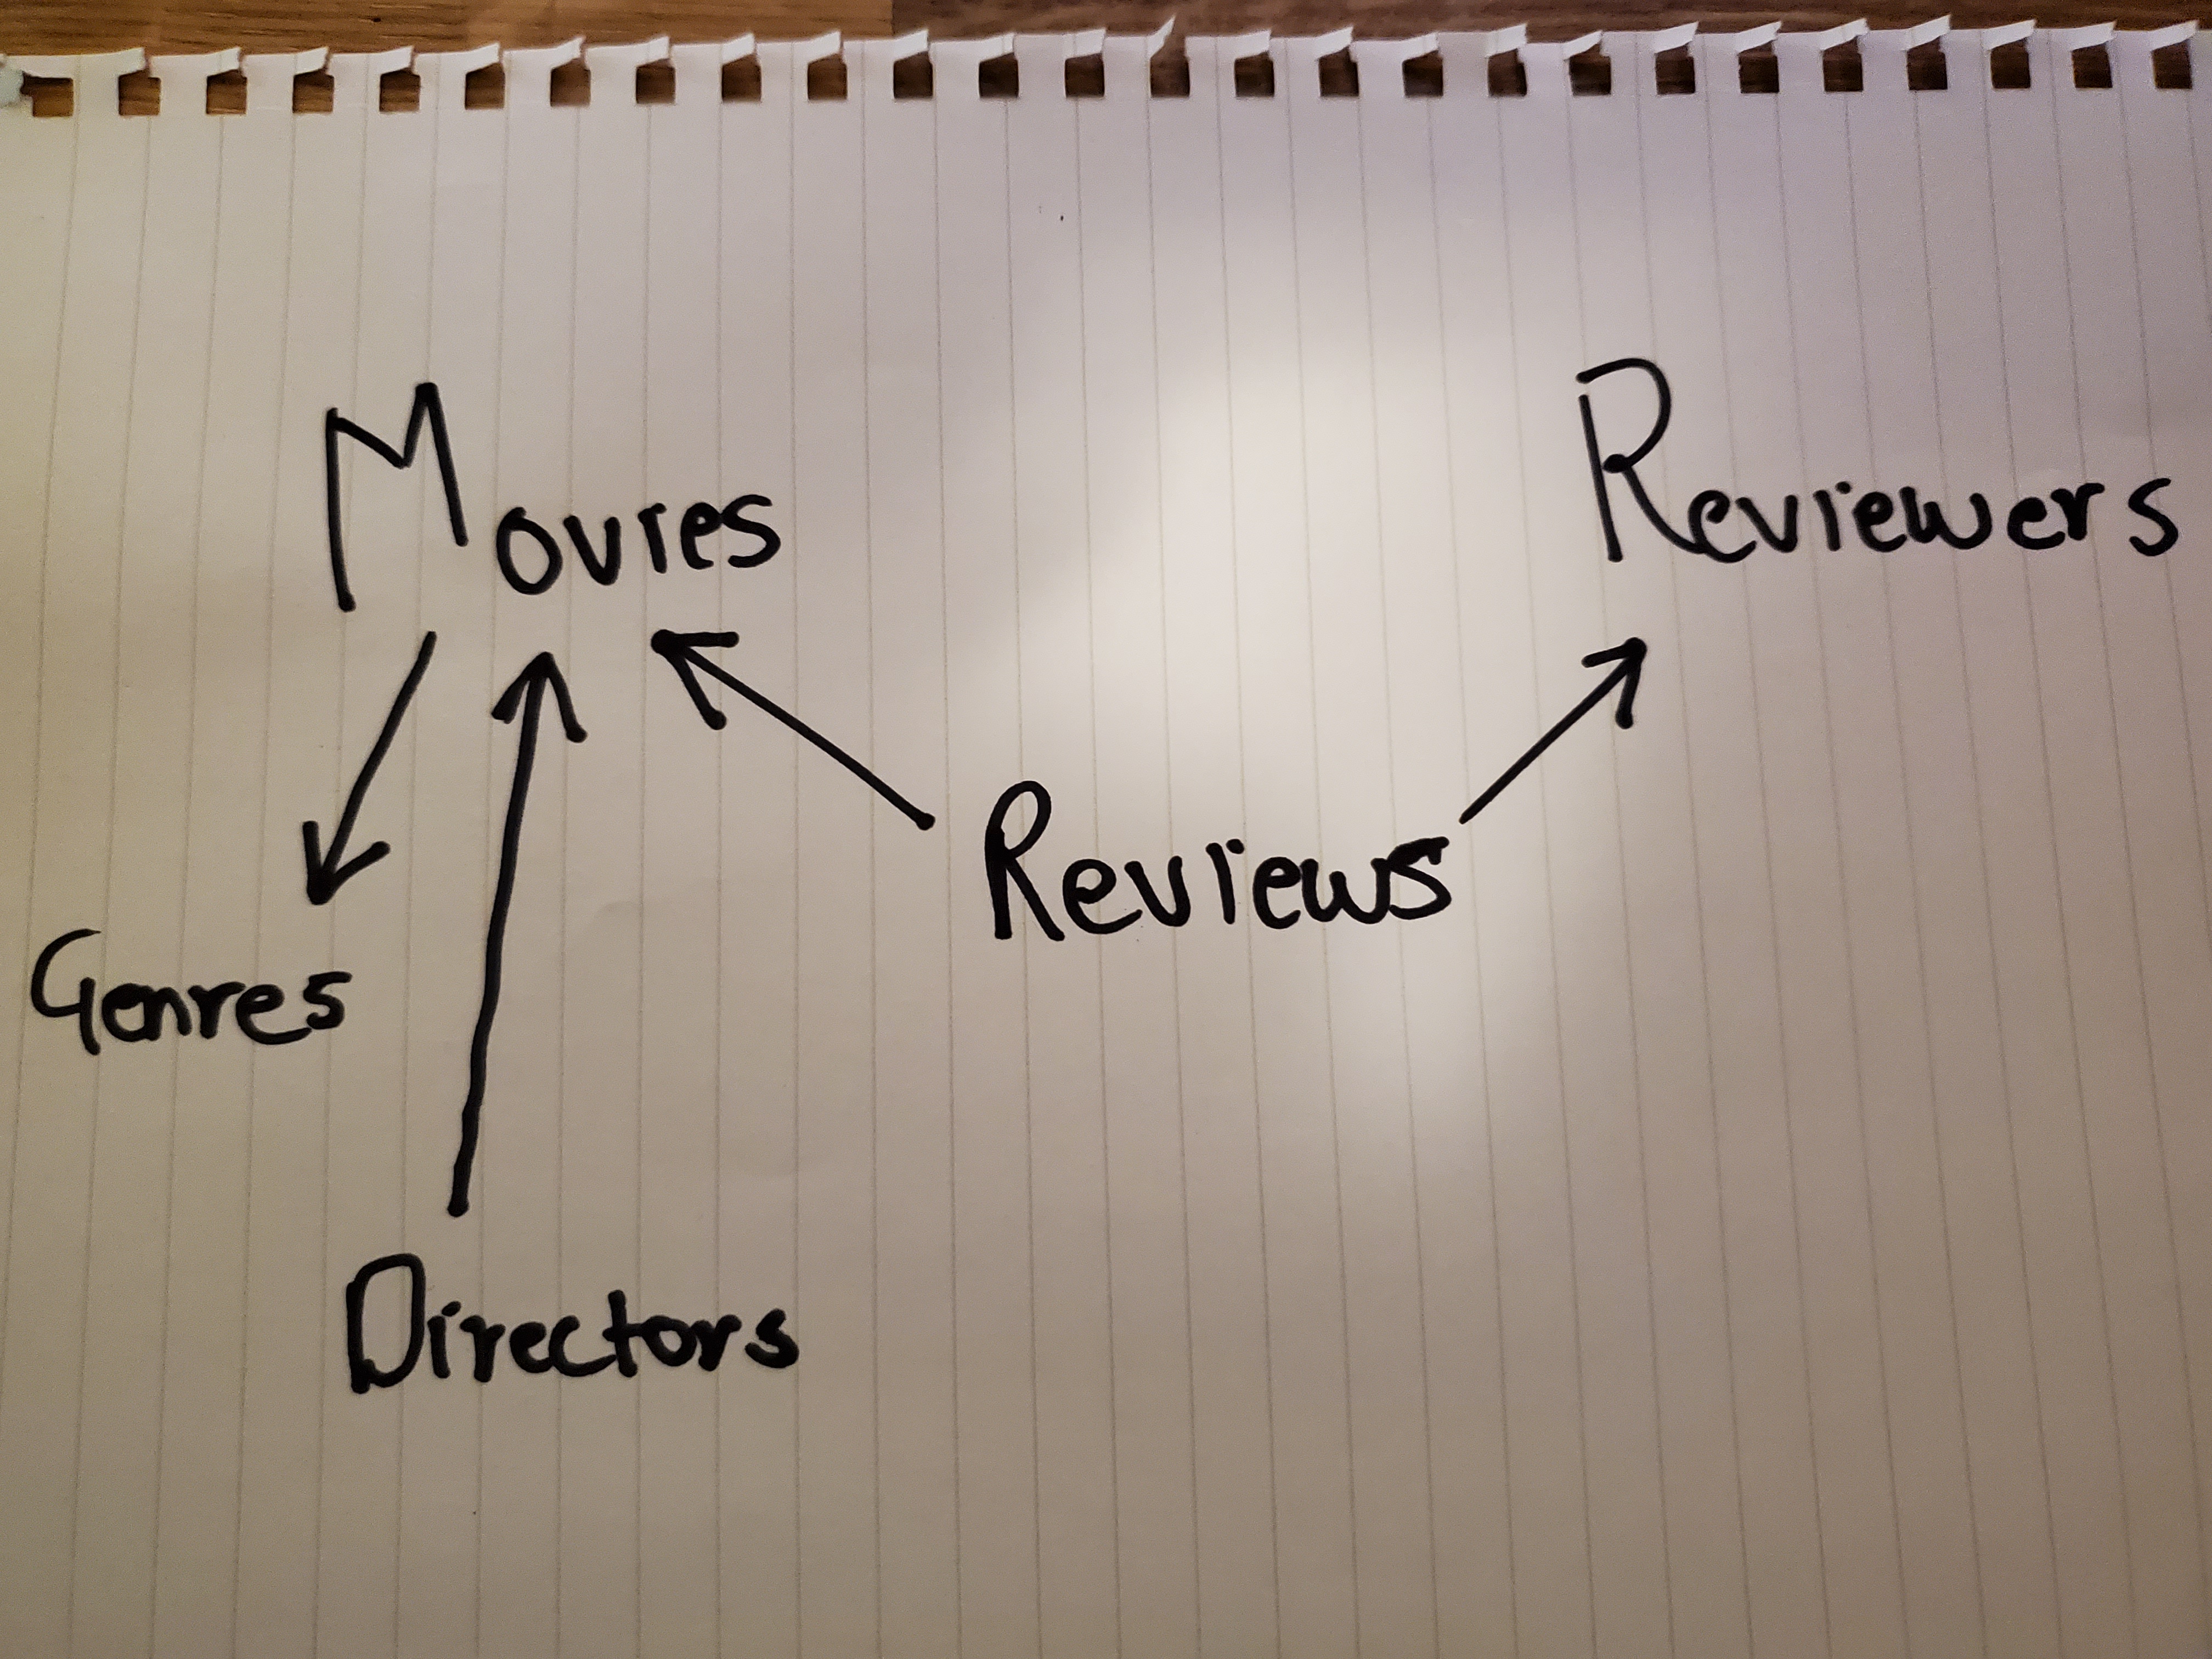 Movies Reviewers
Reviews
Ganres
Directors